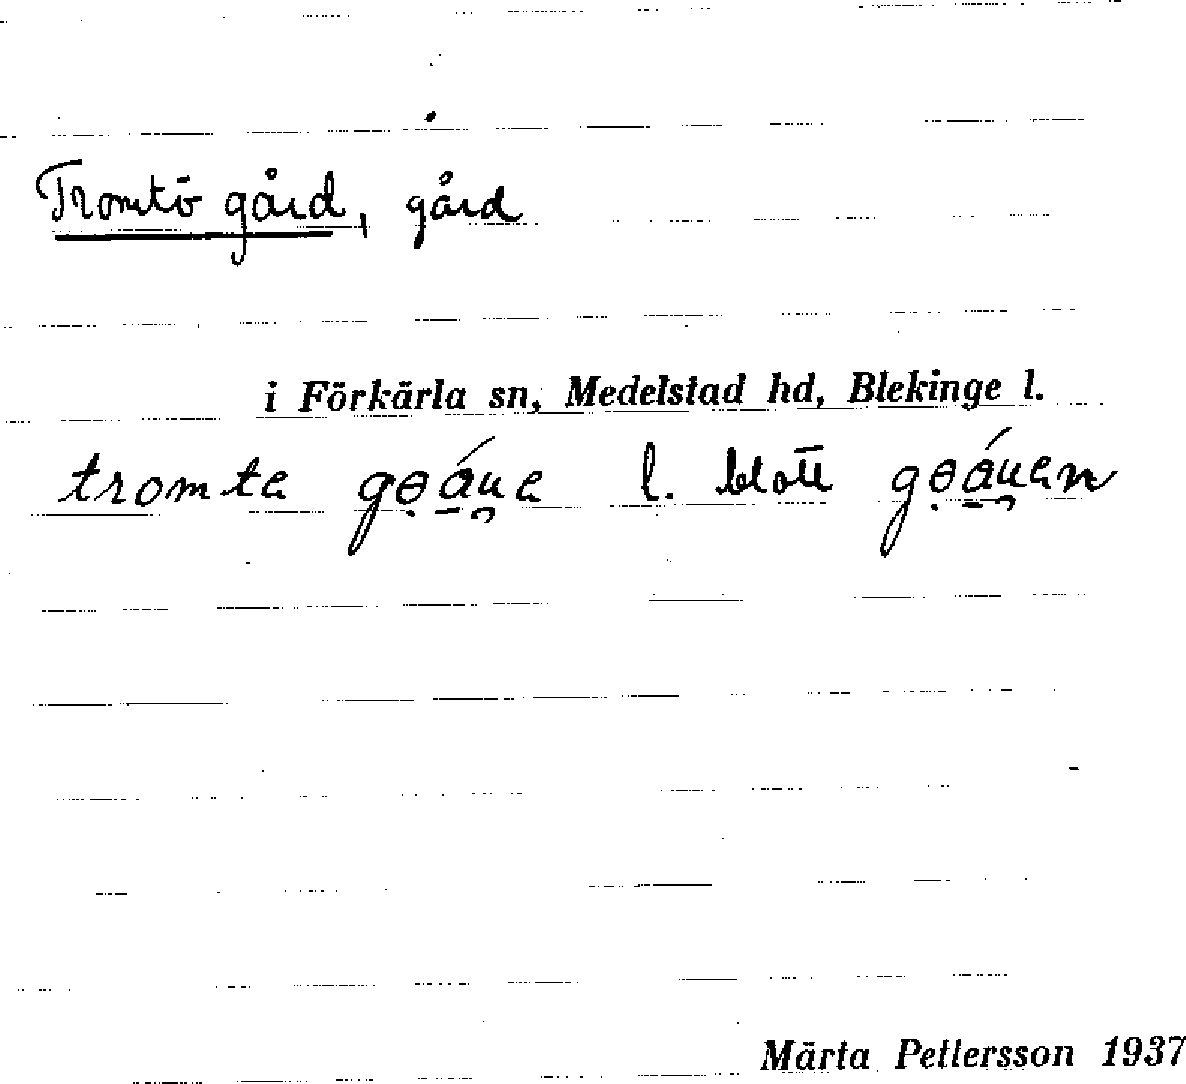 Tromtö gård, gård
i Förkärla sn, Medelstad hd, Blekinge l.
tromta l. blott
Märta Pettersson 1937